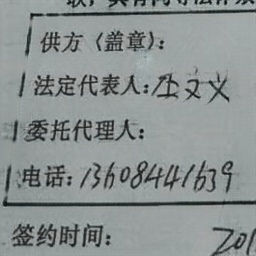 供方（盖章）：
法定代表人：文义
委托代理人：
电话：13608441639
签约时间： 201